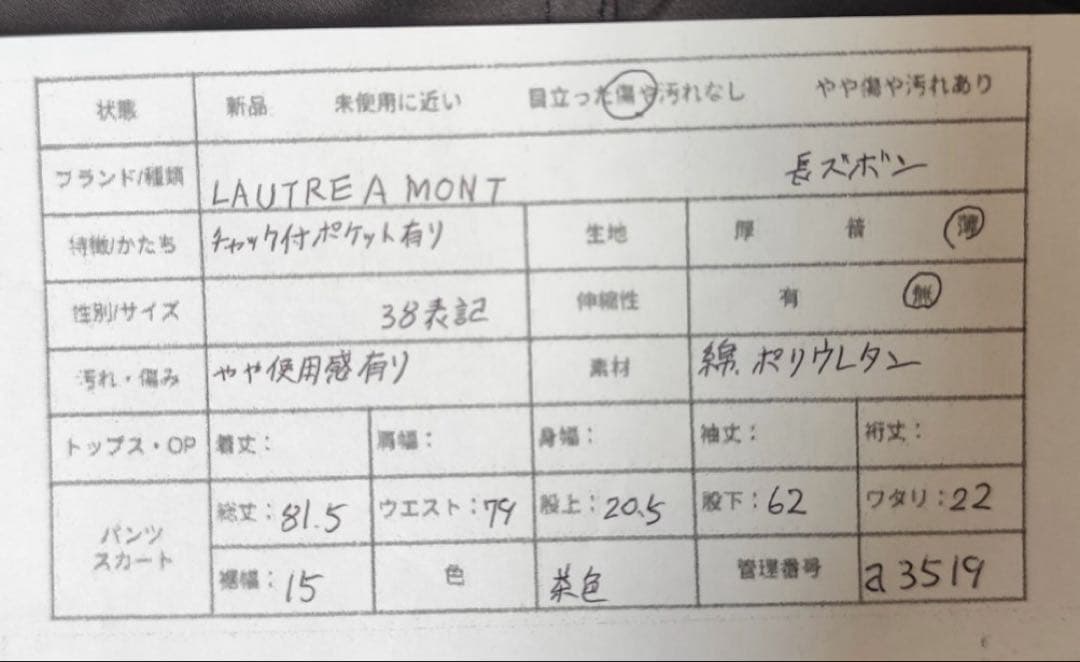 状態 新品 未使用に近い 目立った傷や汚れなし やや傷や汚れあり
ブランド/種類 LAUTREAMONT 長ズボン
特徴/かたち チャック付ポケット有り 生地 厚 普 薄
性別/サイズ 38表記 伸縮性 有 無
汚れ・傷み やや使用感有り 素材 綿、ポリウレタン
トップス・OP 着丈: 肩幅: 身幅: 袖丈: 裄丈:
パンツ
スカート
総丈:81.5 ウエスト:79 股上:20.5 股下:62 ワタリ:22
裾幅:15 色 茶色 管理番号 a3519
6